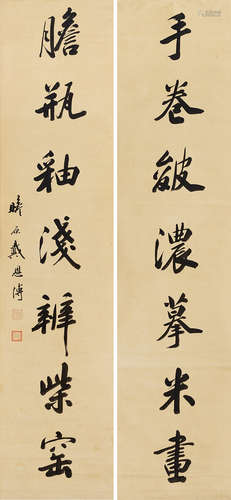 手卷皴濃摹米畫
膽瓶釉淺辨柴窑
戴思溥